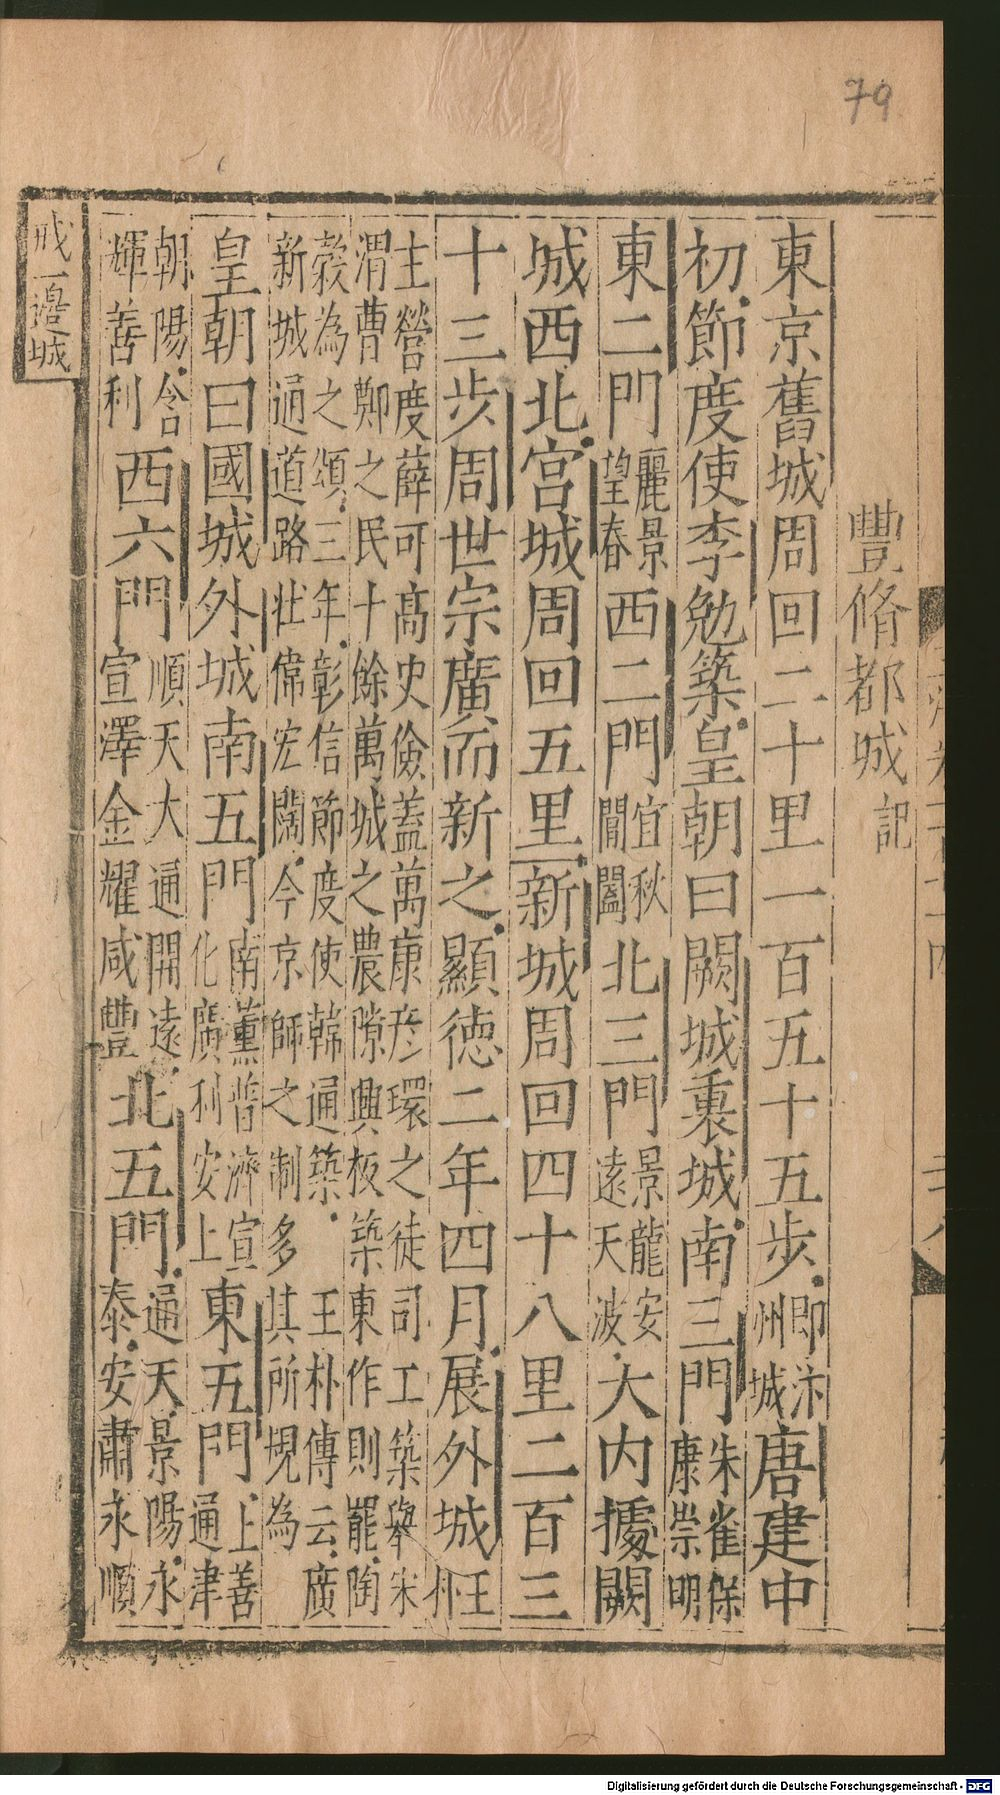 79
豐脩都城記
東京舊城周回二十里一百五十五步即汴州城唐建中
初節度使李勉築皇朝曰闕城裏城南三門朱雀保康崇明
東二門麗景望春西二門宜秋閶闔北三門景龍安遠天波大内據闕
城西北宮城周回五里新城周回四十八里二百三
十三步周世宗廣而新之顯徳二年四月展外城王
主營度薛可髙史儉蓋萬康彦環之徒司工築舉宋
渭曹鄭之民十餘萬城之農隙興板築東作則罷陶
榖為之頌三年彰信節度使韓通築王朴傳云廣
新城通道路壯偉宏闊今京師之制多其所規為
皇朝曰國城外城南五門南薰普濟宣化廣利安上東五門上善通津
朝陽含輝善利西六門順天大通開遠宣澤金耀咸豐北五門通天景陽永泰安肅永順
戒一邊城
Digitalisierung gefördert durch die Deutsche Forschungsgemeinschaft - DFG